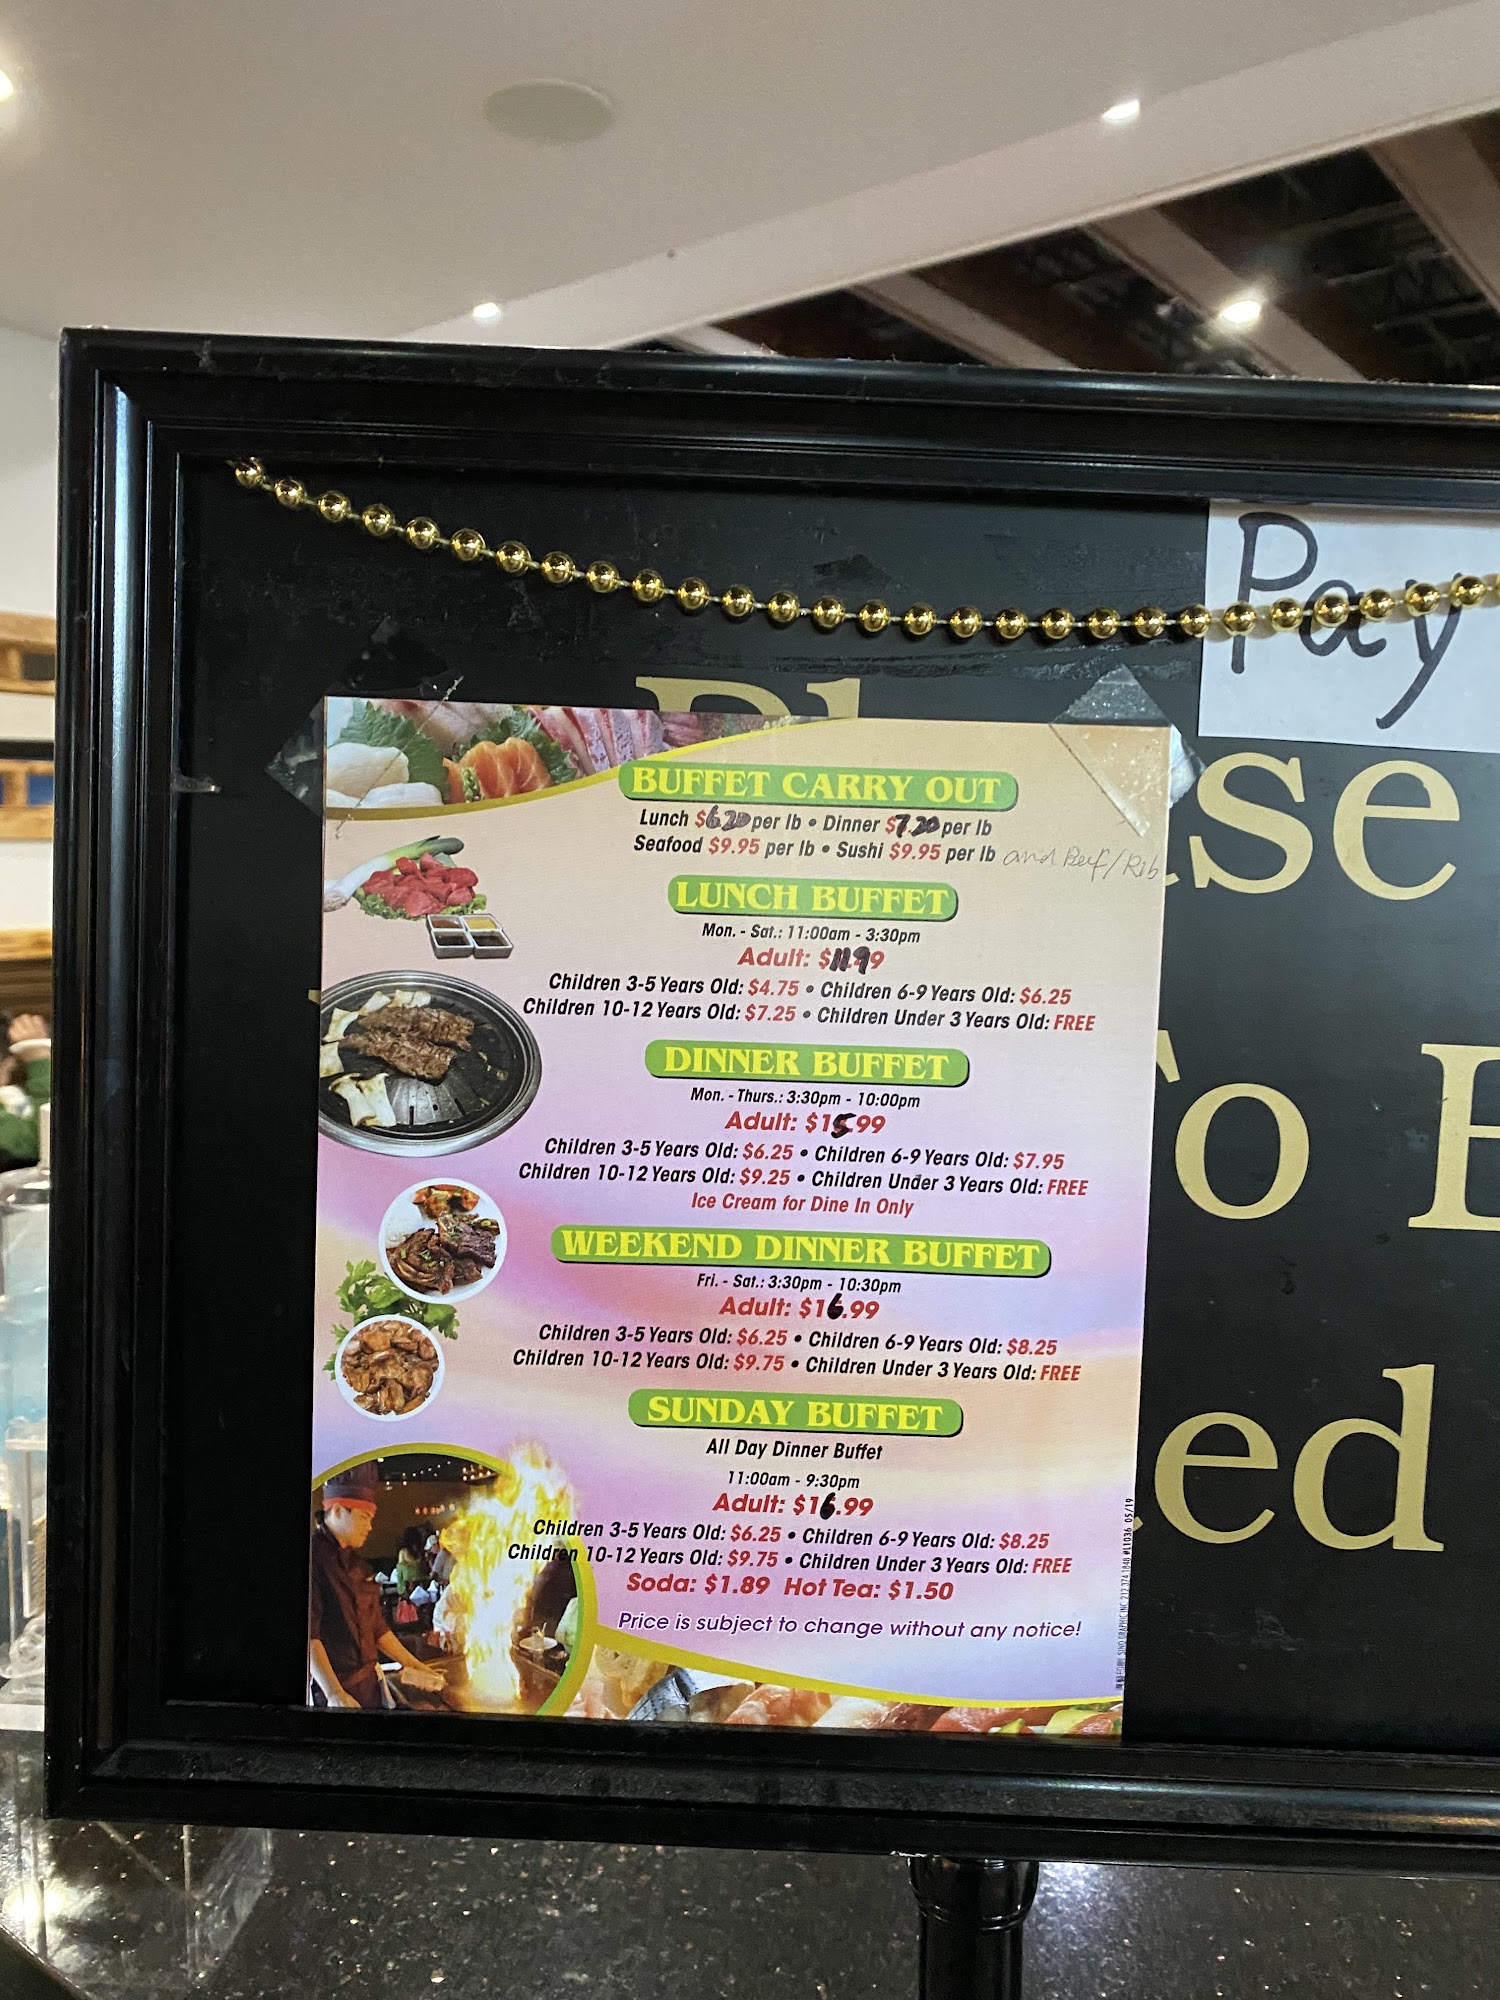 Pay
Please
BUFFET CARRY OUT
Lunch $6.20 per lb • Dinner $7.20 per lb
Seafood $9.95 per lb • Sushi $9.95 per lb and Beef/Rib
LUNCH BUFFET
Mon. - Sat.: 11:00am - 3:30pm
Adult: $11.99
Children 3-5 Years Old: $4.75 • Children 6-9 Years Old: $6.25
Children 10-12 Years Old: $7.25 • Children Under 3 Years Old: FREE
To
DINNER BUFFET
Mon. - Thurs.: 3:30pm - 10:00pm
Adult: $15.99
Children 3-5 Years Old: $6.25 • Children 6-9 Years Old: $7.95
Children 10-12 Years Old: $9.25 • Children Under 3 Years Old: FREE
Ice Cream for Dine In Only
WEEKEND DINNER BUFFET
Fri. - Sat.: 3:30pm - 10:30pm
Adult: $16.99
Children 3-5 Years Old: $6.25 • Children 6-9 Years Old: $8.25
Children 10-12 Years Old: $9.75 • Children Under 3 Years Old: FREE
ed
SUNDAY BUFFET
All Day Dinner Buffet
11:00am - 9:30pm
Adult: $16.99
Children 3-5 Years Old: $6.25 • Children 6-9 Years Old: $8.25
Children 10-12 Years Old: $9.75 • Children Under 3 Years Old: FREE
Soda: $1.89 Hot Tea: $1.50
Price is subject to change without any notice!
212.374.1848 #L1036 05/19